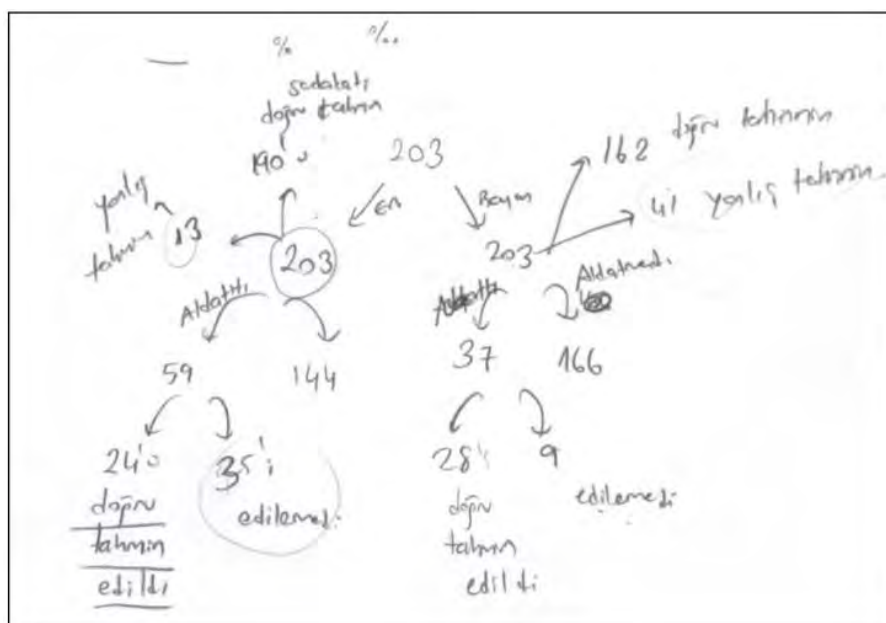 % %..
sadakati
doğru tahmin
190'ı
203
162 doğru tahmin
41 yanlış tahmin
yanlış
tahmin
13
Er
Bayan
203
203
Aldattı
Aldattı
Aldatmadı
59
144
37
166
24'ü
35'i
28'i
9
doğru
tahmin
edildi
edilemedi
doğru
tahmin
edildi
edilemedi